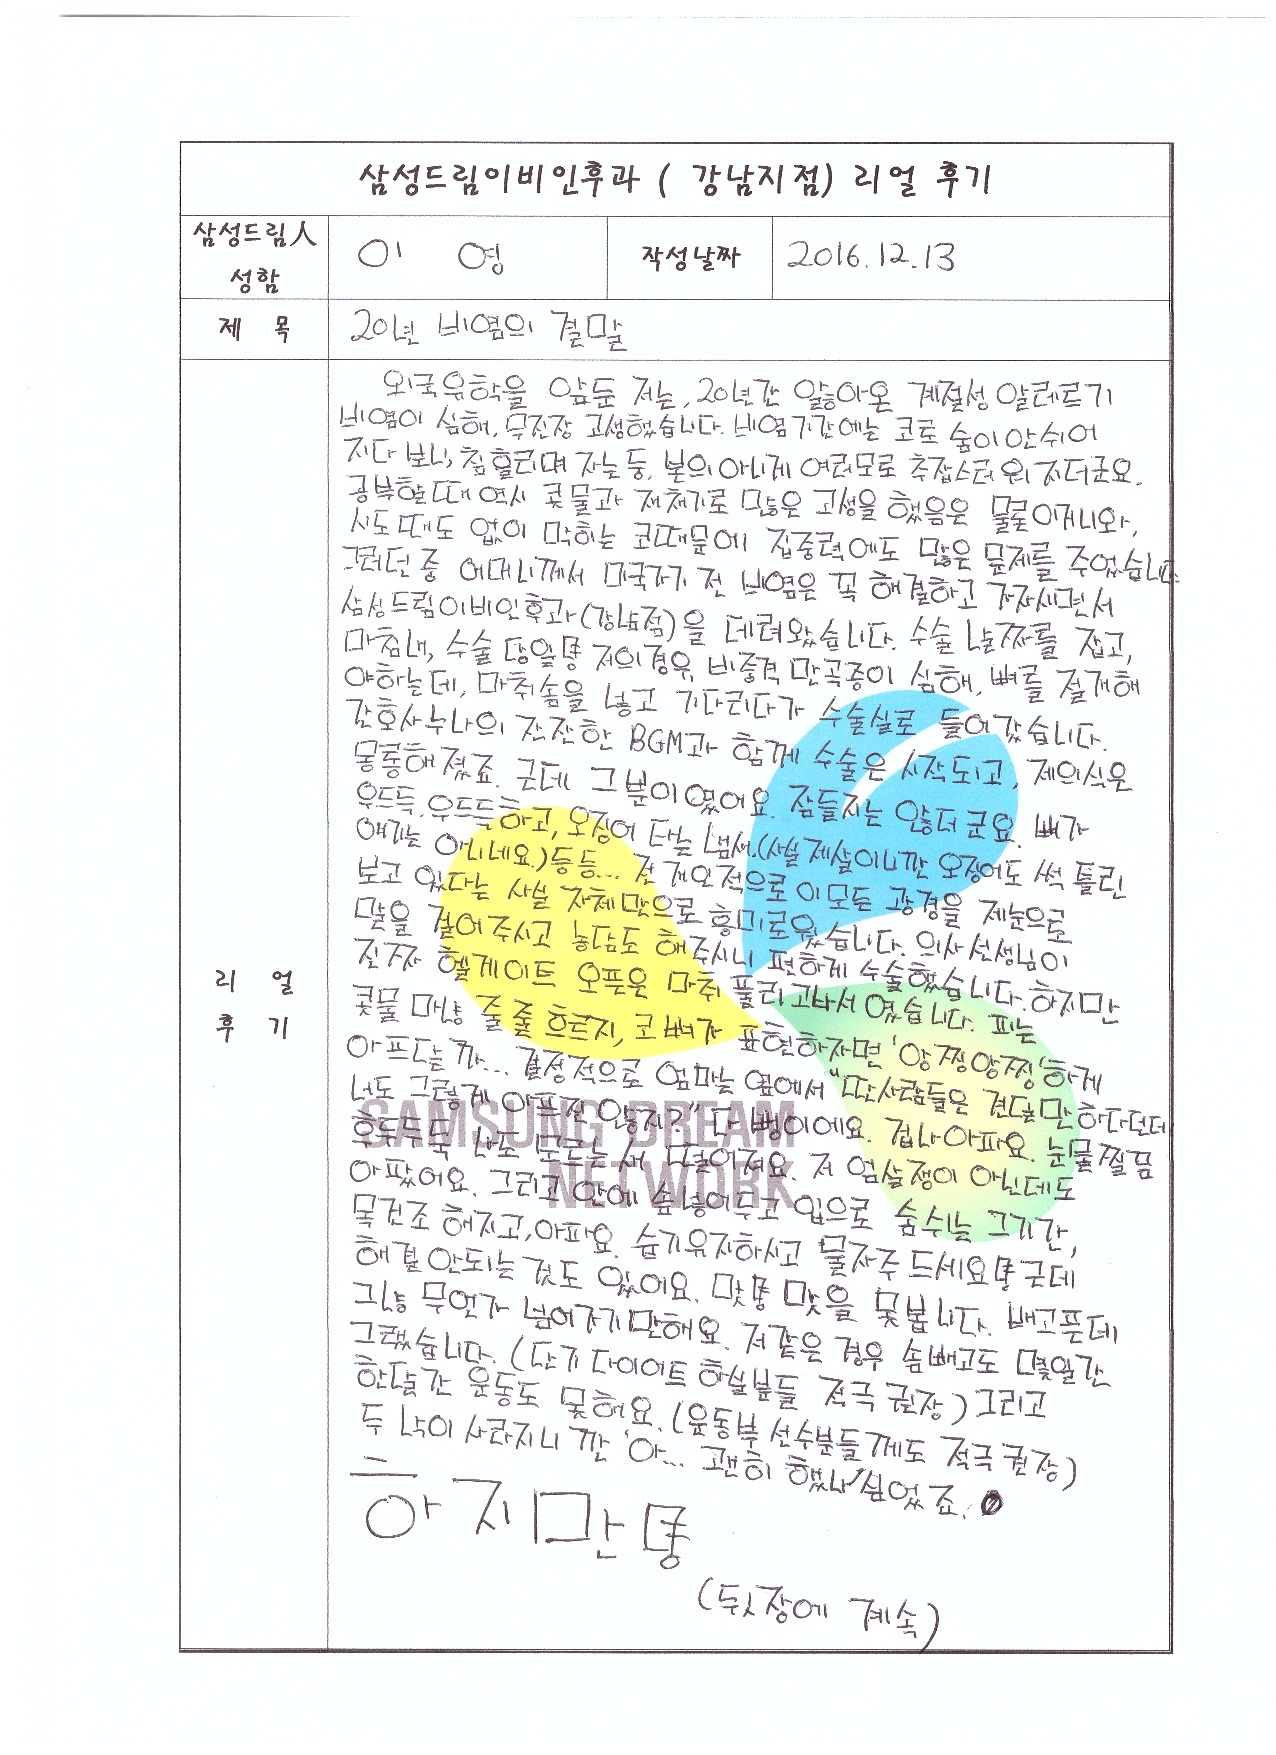 삼성드림이비인후과 ( 강남지점) 리얼 후기
삼성드림人 성함
이 영
작성날짜
2016.12.13
제 목
20년 비염의 결말
리 얼
후 기
외국유학을 앞둔 저는, 20년간 앓아온 계절성 알레르기
비염이 심해, 무진장 고생했습니다. 비염기간에는 코로 숨이 안쉬어
지다 보니, 침흘리며 자는 둥, 본의 아니게 여러모로 추잡스러워 지더군요.
공부할때 역시 콧물과 재채기로 많은 고생을 했음은 물론이거니와,
시도 때도 없이 막히는 코때문에 집중력에도 많은 문제를 주었습니다.
그러던 중 어머니께서 미국가기 전 비염은 꼭 해결하고 가자시면서
삼성드림이비인후과(강남점)을 데려왔습니다. 수술 날짜를 잡고,
마침내, 수술 당일 저의경우, 비중격 만곡증이 심해, 뼈를 절개해
야하는데, 마취솜을 넣고 기다리다가 수술실로 들어갔습니다.
간호사누나의 잔잔한 BGM과 함께 수술은 시작되고, 제의식은
몽롱해졌죠. 근데 그 뿐이였어요. 잠들지는 않더군요. 뼈가
우드득, 우드득하고, 오징어 타는 냄새.(사실 제살이니깐 오징어도 썩 틀린
얘기는 아니네요.)등등... 전 개인적으로 이모든 광경을 제눈으로
보고 있다는 사실 자체만으로 흥미로웠습니다. 의사선생님이
말을 걸어주시고 농담도 해주시니 편하게 수술했습니다. 하지만
진짜 헬게이트 오픈은 마취 풀리고나서 였습니다. 피는
콧물 마냥 줄줄 흐르지, 코뼈가 표현하자면 '앙찡앙찡'하게
아프달까... 결정적으로 엄마는 옆에서 "딴사람들은 견딜만 하다던데
너도 그렇게 아프진 않지?" 다 뻥이에요. 겁나아파요. 눈물찔끔
후두두둑 나도 모르는 새 떨어져요. 저 엄살쟁이 아닌데도
아팠어요. 그리고 안에 솜넣어두고 입으로 숨쉬는 그기간,
목건조 해지고, 아파요. 습기유지하시고 물자주 드세요 근데
해결 안되는 것도 있어요. 맛 맛을 못봅니다. 배고픈데
그냥 무언가 넘어가기만해요. 저같은 경우 솜빼고도 몇일간
그랬습니다. (단기 다이어트 하실분들 적극 권장) 그리고
한달간 운동도 못해요. (운동부 선수분들께도 적극 권장)
두 낙이 사라지니깐 '아... 괜히 했나' 싶었죠.
하지만
(뒷장에 계속)
SAMSUNG DREAM
NETWORK